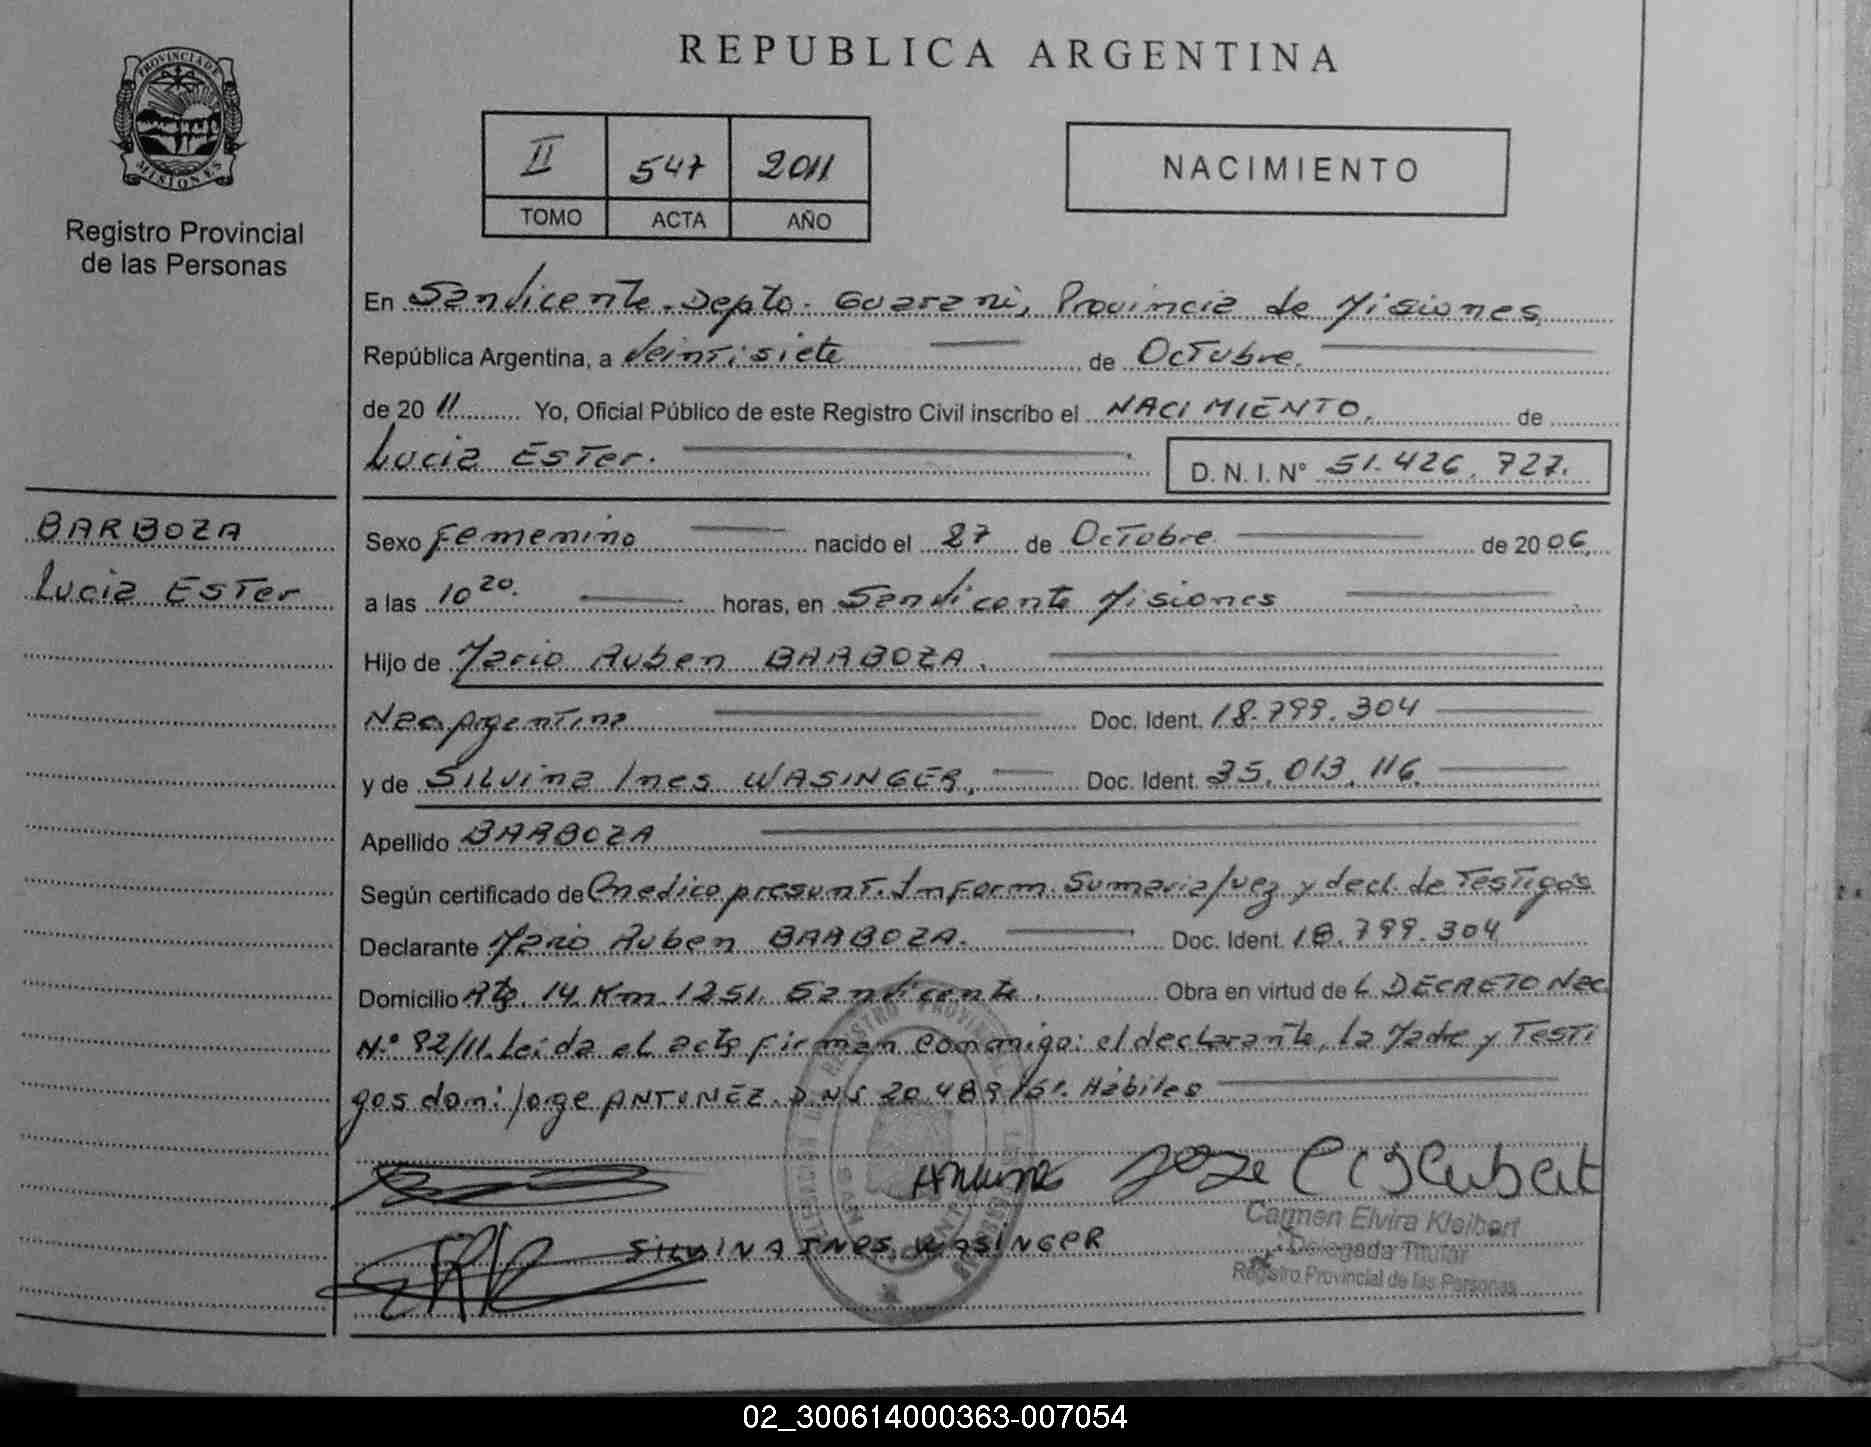 REPUBLICA ARGENTINA
PROVINCIA DE
MISIONES
Registro Provincial
de las Personas
II 547 2011
TOMO ACTA AÑO
NACIMIENTO
En San Vicente. Depto. Guarani, Provincia de Misiones
República Argentina, a Veintisiete de Octubre.
de 20 11 Yo, Oficial Público de este Registro Civil inscribo el NACIMIENTO. de
Lucia Ester. D. N. I. N° 51.426.727.
BARBOZA
Lucia Ester
Sexo Femenino nacido el 27 de Octubre de 20 06
a las 10 20. horas, en San Vicente Misiones
Hijo de Mario Ruben BARBOZA.
Nac. Argentina Doc. Ident. 18.799.304
y de Silvina Ines WASINGER, Doc. Ident. 35.013.116
Apellido BARBOZA
Según certificado de Medico presunt. Inform. Sumaria Juez y decl. de Testigos
Declarante Mario Ruben BARBOZA. Doc. Ident. 18.799.304
Domicilio Rta. 14 Km 1251. San Vicente. Obra en virtud de L DECRETO Nac.
N.° 92/11. Leida el acta firman conmigo: el declarante, la Madre y Testi
gos don: Jorge ANTUNEZ. DNI 20.489.161. Hábiles
SILVINA INES WASINGER
Carmen Elvira Kleibert
Delegada Titular
Registro Provincial de las Personas
02_300614000363-007054